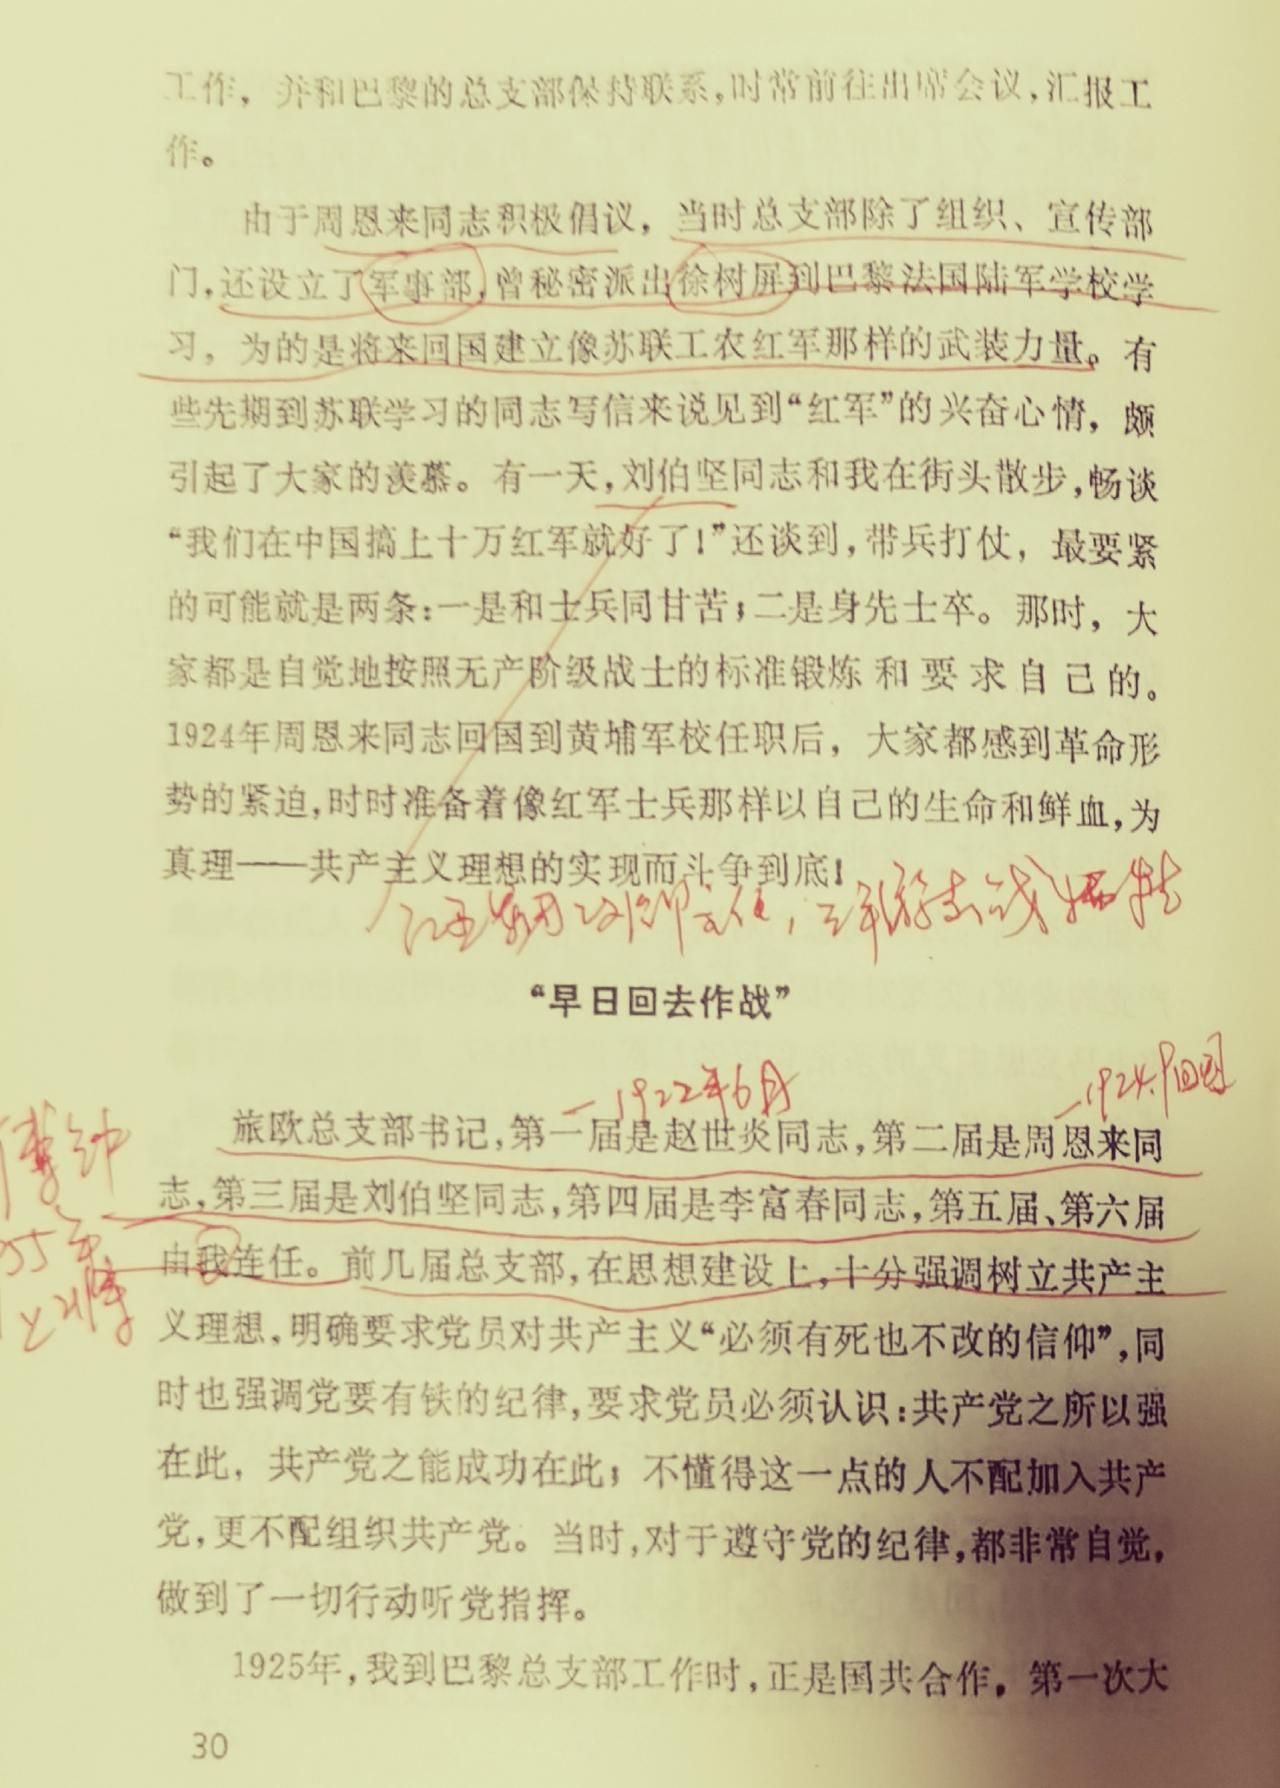 工作，并和巴黎的总支部保持联系，时常前往出席会议，汇报工
作。
由于周恩来同志积极倡议，当时总支部除了组织、宣传部
门，还设立了军事部，曾秘密派出徐树屏到巴黎法国陆军学校学
习，为的是将来回国建立像苏联工农红军那样的武装力量。有
些先期到苏联学习的同志写信来说见到“红军”的兴奋心情，颇
引起了大家的羡慕。有一天，刘伯坚同志和我在街头散步，畅谈
“我们在中国搞上十万红军就好了！”还谈到，带兵打仗，最要紧
的可能就是两条：一是和士兵同甘苦；二是身先士卒。那时，大
家都是自觉地按照无产阶级战士的标准锻炼和要求自己的。
1924年周恩来同志回国到黄埔军校任职后，大家都感到革命形
势的紧迫，时时准备着像红军士兵那样以自己的生命和鲜血，为
真理——共产主义理想的实现而斗争到底！
主任，三年游击战 牺牲
“早日回去作战”
—1922年6月
—1924.9回国
旅欧总支部书记，第一届是赵世炎同志，第二届是周恩来同
志，第三届是刘伯坚同志，第四届是李富春同志，第五届、第六届
由我连任。前几届总支部，在思想建设上，十分强调树立共产主
义理想，明确要求党员对共产主义“必须有死也不改的信仰”，同
时也强调党要有铁的纪律，要求党员必须认识：共产党之所以强
在此，共产党之能成功在此；不懂得这一点的人不配加入共产
党，更不配组织共产党。当时，对于遵守党的纪律，都非常自觉，
做到了一切行动听党指挥。
1925年，我到巴黎总支部工作时，正是国共合作，第一次大
傅钟
55年
上将
30